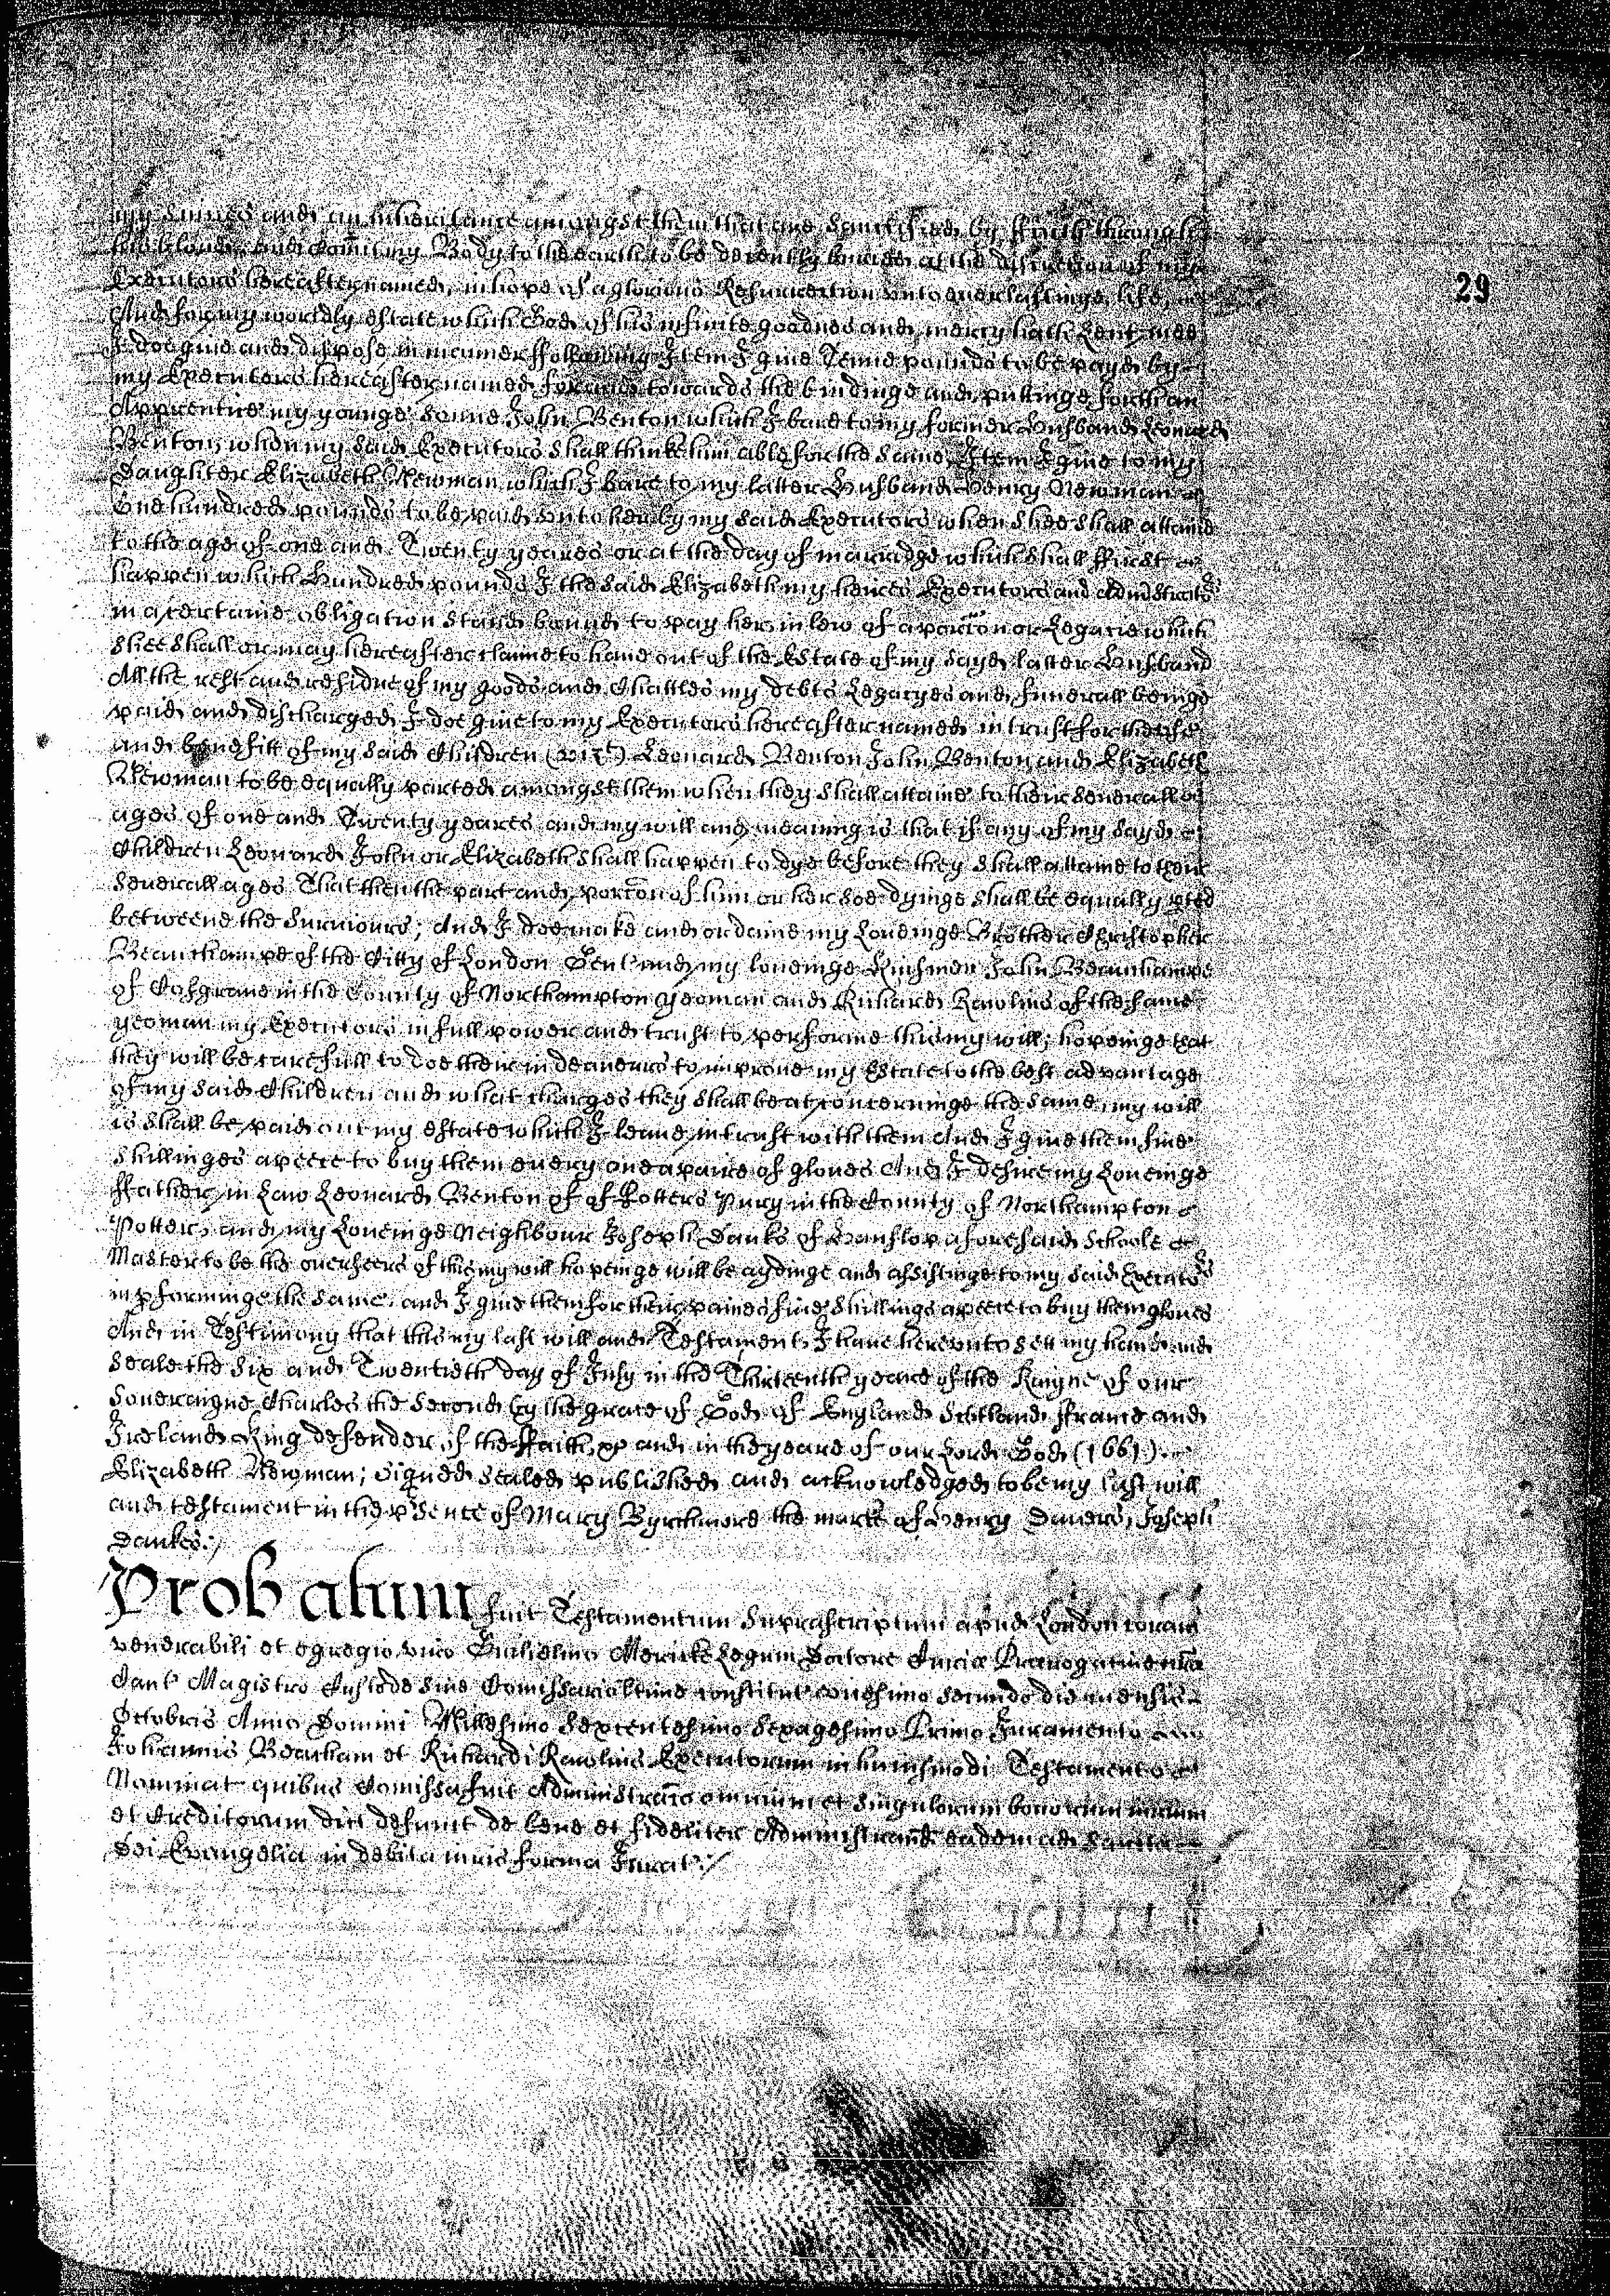 my sinnes and an inheritance amongst them that are sanctified by faith through
his bloud, and comit my Body to the earth to be decently buried at the discretion of my
Executors hereafter named, in hope of a glorious Resurrection unto everlastinge life,
And for my worldly estate which God of his infinite goodnes and mercy hath Lent mee
I doe give and dispose in manner ffollowing Item I give Tenne pounds to be payd by
my Executors hereafter named towards the bindinge and puttinge forth an
Apprentice my younge sonne John Benton which I bare to my former Husband Leonard
Benton, when my said Executors shall thinke him able for the same, Item I give to my
Daughter Elizabeth Newman which I bare to my latter Husband Henry Newman
One hundred pounds to be paid unto her by my said Executors when shee shall attaine
to the age of one and Twenty yeares or at the day of marridge which shall ffirst
happen which Hundred pounds I the said Elizabeth my heires Executors and Administrators
in a certaine obligation stand bound to pay her in lew of a porcon or Legacie which
shee shall or may hereafter claime to have out of the Estate of my sayd latter Husband
All the rest and residue of my goods and Chattles my debts Legacyes and funerall beinge
paid and discharged I doe give to my Executors hereafter named in trust for the use
and benefitt of my said Children (vizt) Leonard Benton John Benton and Elizabeth
Newman to be equally parted amongst them when they shall attaine to their severall
ages of one and Twenty yeares and my will and meaning is that if any of my sayd
Children Leonard John or Elizabeth shall happen to dye before they shall attaine to their
severall ages That then the part and porcon of him or her soe dyinge shall be equally pted
betweene the survivours; And I doe make and ordaine my Loveinge Brother Christopher
Beauchampe of the Citty of London Gent and my loveinge Kinsmen John Beauchampe
of Cosgrave in the County of Northampton yeoman and Richard Rawlins of the same
yeoman my Executors in full power and trust to performe this my will; hopeinge that
they will be carefull to doe their indeavours to improve my Estate to the best advantage
of my said Children and what charges they shall be at concerninge the same my will
is shall be paid out my estate which I leave in trust with them And I give them five
shillinges apeece to buy them every one a paire of gloves And I desire my Loveinge
ffather in Law Leonard Benton of of Potters Pury in the County of Northampton
Potter, and my Loveinge Neighbour Joseph Danks of Hanslop aforesaid Schoole
Master to be the overseers of this my will hopeinge will be aydinge and assistinge to my said Executors
in pforminge the same, and I give them for their paines five shillings apeece to buy them gloves
And in Testimony that this my last will and Testament, I have hereunto sett my hand and
seale the six and Twentieth day of July in the Thirteenth yeare of the Raigne of our
Soveraigne Charles the Second by the grace of God of England Scotland ffrance and
Ireland King defender of the ffaith &c and in the yeare of our Lord God (1661).
Elizabeth Newman; Signed sealed published and acknowledged to be my last will
and testament in the psence of Mary Byrchmore the marke of Henry Davers, Joseph
Dankes:/
Probatum fuit Testamentum suprascriptum apud London coram
venerabili et egregio viro Guilielmo Mericke Legum Doctore Curiæ Prærogativæ
Cant Magistro Custode sive Comissario ltime constitut vicesimo secundo die mensis
Octobris Anno Domini Millesimo Sexcentesimo Sexagesimo Primo Juramento
Johannis Beacham et Richardi Rawlins Executorum in huiusmodi Testamento
Nominat quibus Comissa fuit Administraco omnium et singulorum bonorum iurium
et Creditorum dict defunct de bene et fideliter Administrand eadem ad Sancta
Dei Evangelia in debita iuris forma Jurat:/
29